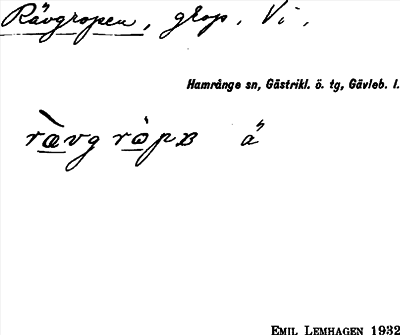 Rävgropen, grop. Vi.
Hamrånge sn, Gästrikl. ö. tg, Gävleb. l.
rævg rɷpʙ a"
EMIL LEMHAGEN 1932